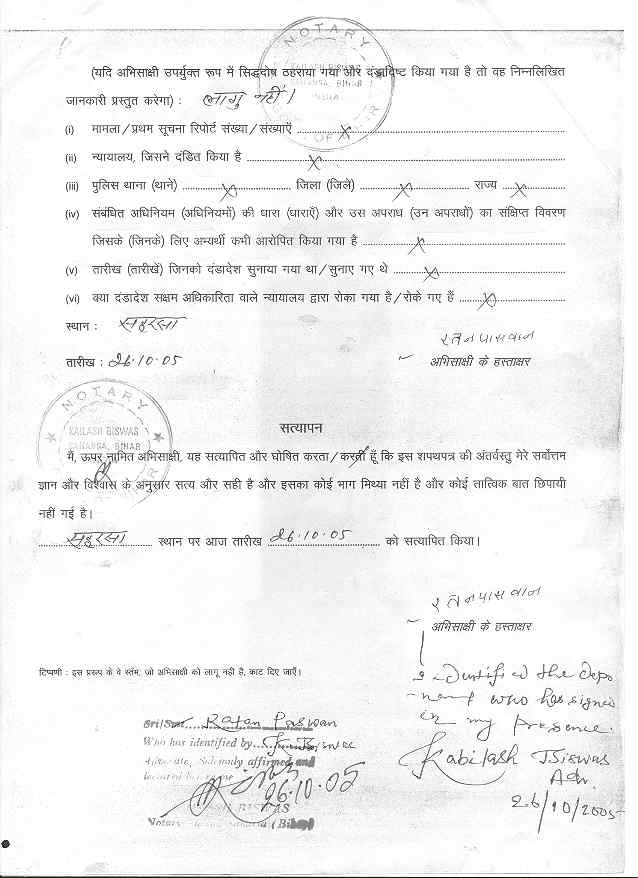 NOTARY
(यदि अभिसाक्षी उपर्युक्त रूप में सिद्धदोष ठहराया गया और दंडादिष्ट किया गया है तो वह निम्नलिखित
जानकारी प्रस्तुत करेगा) : लागु नहीं।
(i) मामला / प्रथम सूचना रिपोर्ट संख्या / संख्याएँ ........ X
(ii) न्यायालय, जिसने दंडित किया है ........ X
(iii) पुलिस थाना (थाने) ........ X ........ जिला (जिले) ........ X ........ राज्य ... X ...
(iv) संबंधित अधिनियम (अधिनियमों) की धारा (धाराएँ) और उस अपराध (उन अपराधों) का संक्षिप्त विवरण
जिसके (जिनके) लिए अभ्यर्थी कभी आरोपित किया गया है ........ X ........
(v) तारीख (तारीखें) जिनको दंडादेश सुनाया गया था / सुनाए गए थे ........ X ........
(vi) क्या दंडादेश सक्षम अधिकारिता वाले न्यायालय द्वारा रोका गया है / रोके गए हैं ........ X ........
स्थान : सहरसा
रतन पासवान
तारीख : 26.10.05
अभिसाक्षी के हस्ताक्षर
NOTARY
KAILASH BISWAS
SAHARSA, BIHAR
सत्यापन
मैं, ऊपर नामित अभिसाक्षी, यह सत्यापित और घोषित करता / करती हूँ कि इस शपथपत्र की अंतर्वस्तु मेरे सर्वोत्तम
ज्ञान और विश्वास के अनुसार सत्य और सही है और इसका कोई भाग मिथ्या नहीं है और कोई तात्विक बात छिपायी
नहीं गई है।
सहरसा ........ स्थान पर आज तारीख 26.10.05 ........ को सत्यापित किया।
रतन पासवान
अभिसाक्षी के हस्ताक्षर
टिप्पणी : इस प्ररूप के वे स्तंम, जो अभिसाक्षी को लागू नही है, काट दिए जाएँ।
I identified the depo
nent who has signed
in my presence.
Kabilash Biswas
Adv.
26/10/2005
Sri/Smt Ratan Paswan
Who has identified by K. Biswas
Advocate, Solemnly affirmed and
26.10.05
Notary (Bihar)